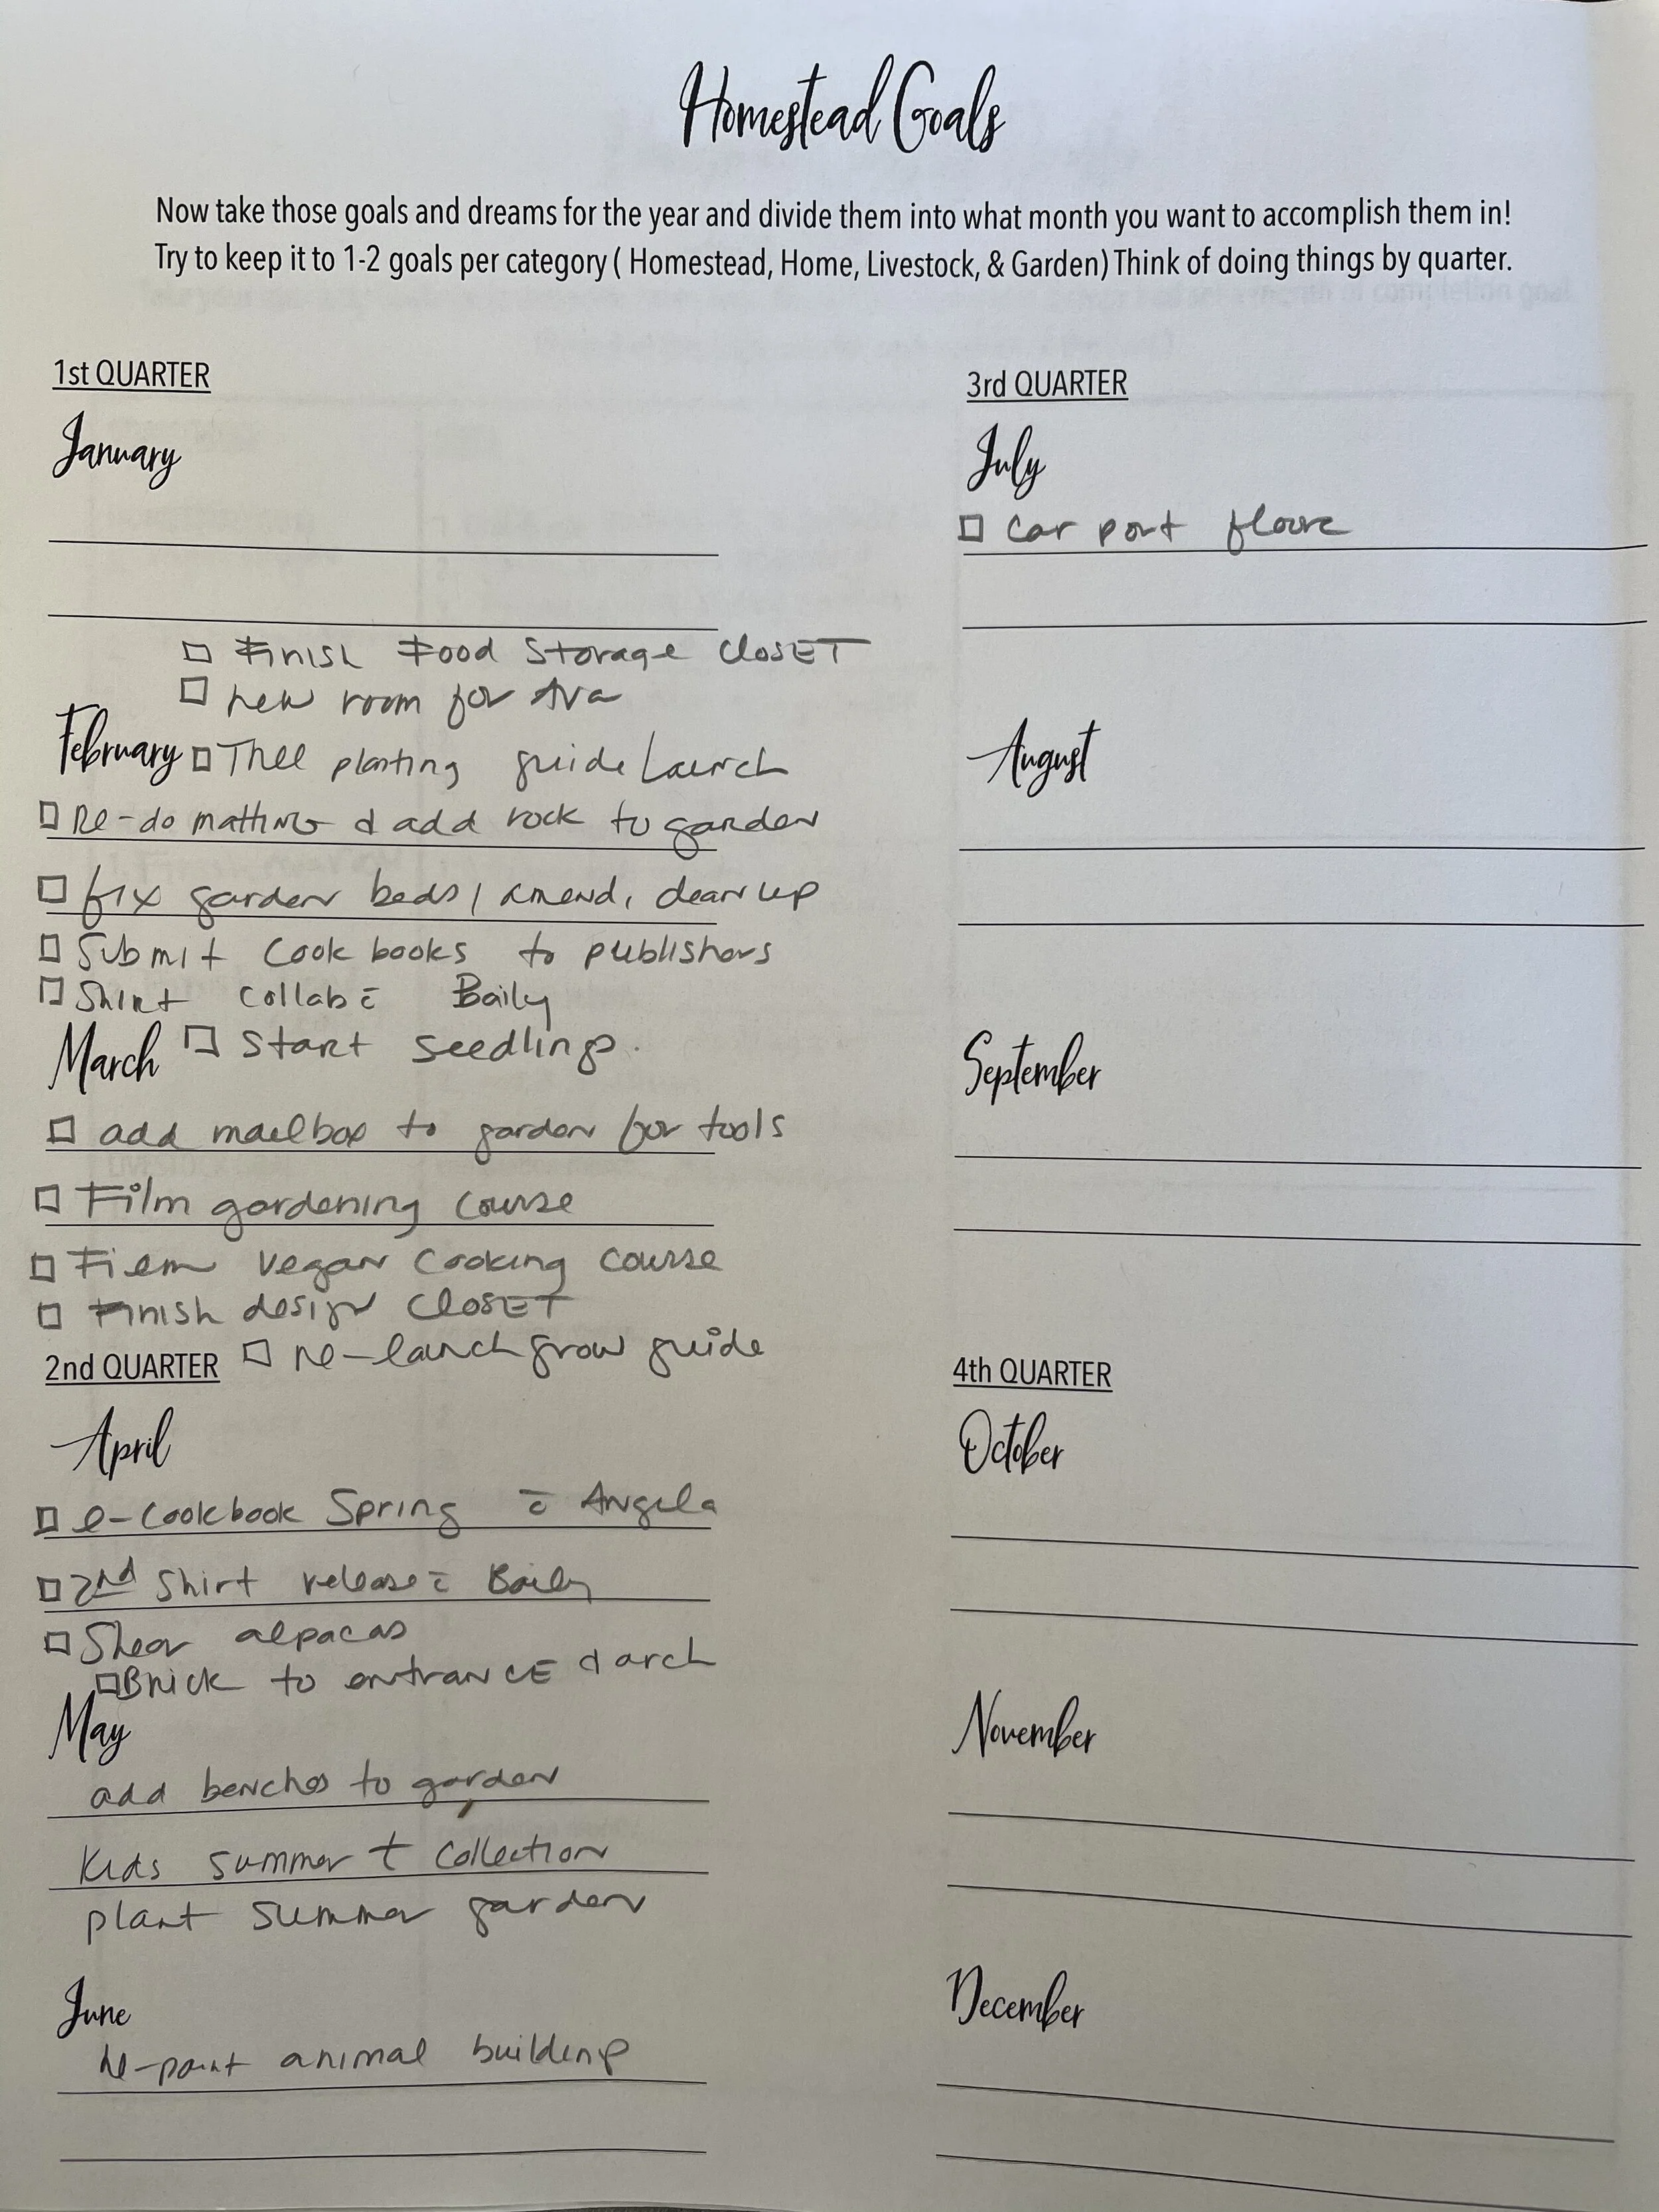 Homestead Goals
Now take those goals and dreams for the year and divide them into what month you want to accomplish them in!
Try to keep it to 1-2 goals per category ( Homestead, Home, Livestock, & Garden) Think of doing things by quarter.
1st QUARTER
January
☐ Finish Food Storage Closet
☐ new room for Ava
February ☐ Tree planting guide Launch
☐ Re-do matting & add rock to garden
☐ fix garden beds, amend, clean up
☐ Submit Cook books to publishers
☐ Shirt collab c̄ Baily
March ☐ Start seedlings.
☐ add mailbox to garden for tools
☐ Film gardening course
☐ Film vegan cooking course
☐ Finish design closet
☐ re-launch grow guide
2nd QUARTER
April
☐ e-cookbook Spring c̄ Angela
☐ 2nd Shirt release c̄ Baily
☐ Shear alpacas
☐ Brick to entrance & arch
May
add benches to garden
Kids summer t collection
plant summer garden
June
re-paint animal building
3rd QUARTER
July
☐ Car port
August
September
4th QUARTER
October
November
December